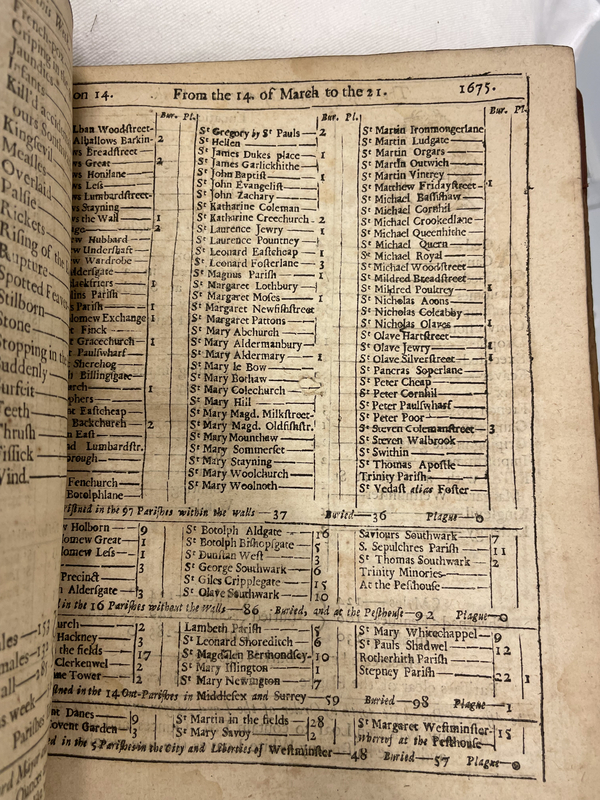 on 14. From the 14. of March to the 21. 1675.
Bur. Pl. Bur. Pl. Bur. Pl.
Lban Woodstreet- St Gregory by St Pauls—2 St Martin Ironmongerlane
Alhallows Barkin-2 St Hellen St Martin Ludgate
ws Breadstreet St James Dukes place—1 St Martin Orgars
ws Great—2 St James Garlickhithe St Martin Outwich
ws Honilane St John Baptist—1 St Martin Vintrey
ws Less St John Evangelist St Matthew Fridaystreet—1
ws Lumbardstreet- St John Zachary St Michael Bassishaw
ws Stayning St Katharine Coleman St Michael Cornhil
ws the Wall—1 St Katharine Creechurch—2 St Michael Crookedlane
2 St Laurence Jewry—1 St Michael Queenhithe
w Hubbard St Laurence Pountney St Michael Quern
w Undershaft St Leonard Eastcheap—1 St Michael Royal
w Wardrobe St Leonard Fosterlane—3 St Michael Woodstreet
ldersgate St Magnus Parish—1 St Mildred Breadstreet
lackfriers—1 St Margaret Lothbury St Mildred Poultrey—1
lins Parish St Margaret Moses—1 St Nicholas Acons
s Parish—1 St Margaret Newfishstreet St Nicholas Coleabby
lomew Exchange 1 St Margaret Pattons St Nicholas Olaves—1
t Finck St Mary Abchurch St Olave Hartstreet
t Gracechurch—1 St Mary Aldermanbury St Olave Jewry—1
t Paulswharf St Mary Aldermary—1 St Olave Silverstreet
Sherehog St Mary le Bow St Pancras Soperlane
h Billingsgate St Mary Bothaw St Peter Cheap
urch—1 St Mary Colechurch St Peter Cornhil
phers St Mary Hill St Peter Paulswharf
nt Eastcheap St Mary Magd. Milkstreet- St Peter Poor
Backchurch—2 St Mary Magd. Oldfishstr. St Steven Colemanstreet—3
n East St Mary Mounthaw St Steven Walbrook
nd Lumbardstr. St Mary Sommerset St Swithin
orough St Mary Stayning St Thomas Apostle
St Mary Woolchurch Trinity Parish
Fenchurch St Mary Woolnoth St Vedast alias Foster
Botolphlane
ristned in the 97 Parishes within the Walls—37 Buried—36 Plague—0
w Holborn—9 St Botolph Aldgate—16 Saviours Southwark—7
lomew Great—1 St Botolph Bishopsgate—5 S. Sepulchres Parish—11
lomew Less—1 St Dunstan West—3 St Thomas Southwark—2
3 St George Southwark—6 Trinity Minories
Precinct St Giles Cripplegate—15 At the Pesthouse
h Aldersgate—3 St Olave Southwark—10
d in the 16 Parishes without the Walls—86 Buried, and at the Pesthouse—92 Plague—0
urch—2 Lambeth Parish—5 St Mary Whitechappel—9
Hackney—3 St Leonard Shoreditch—6 St Pauls Shadwel—12
the fields—17 St Magdalen Bermondsey-10 Rotherhith Parish
Clerkenwel—2 St Mary Islington—1 Stepney Parish—22 1
me Tower—2 St Mary Newington—7
stned in the 14 Out-Parishes in Middlesex and Surrey—59 Buried—98 Plague—1
nt Danes—9 St Martin in the fields—28 St Margaret Westminster—15
ovent Garden—3 St Mary Savoy—2 whereof at the Pesthouse
ed in the 5 Parishes in the City and Liberties of Westminster—48 Buried—57 Plague—0
French-pox
Griping in the
Jaundies
Infants
Kingsevil
Measles
Overlaid
Palsie
Rickets
Rising of the
Rupture
Spotted Feaver
Stilborn
Stone
Stopping in the
Suddenly
urfeit
Teeth
Thrush
Tissick
Wind.